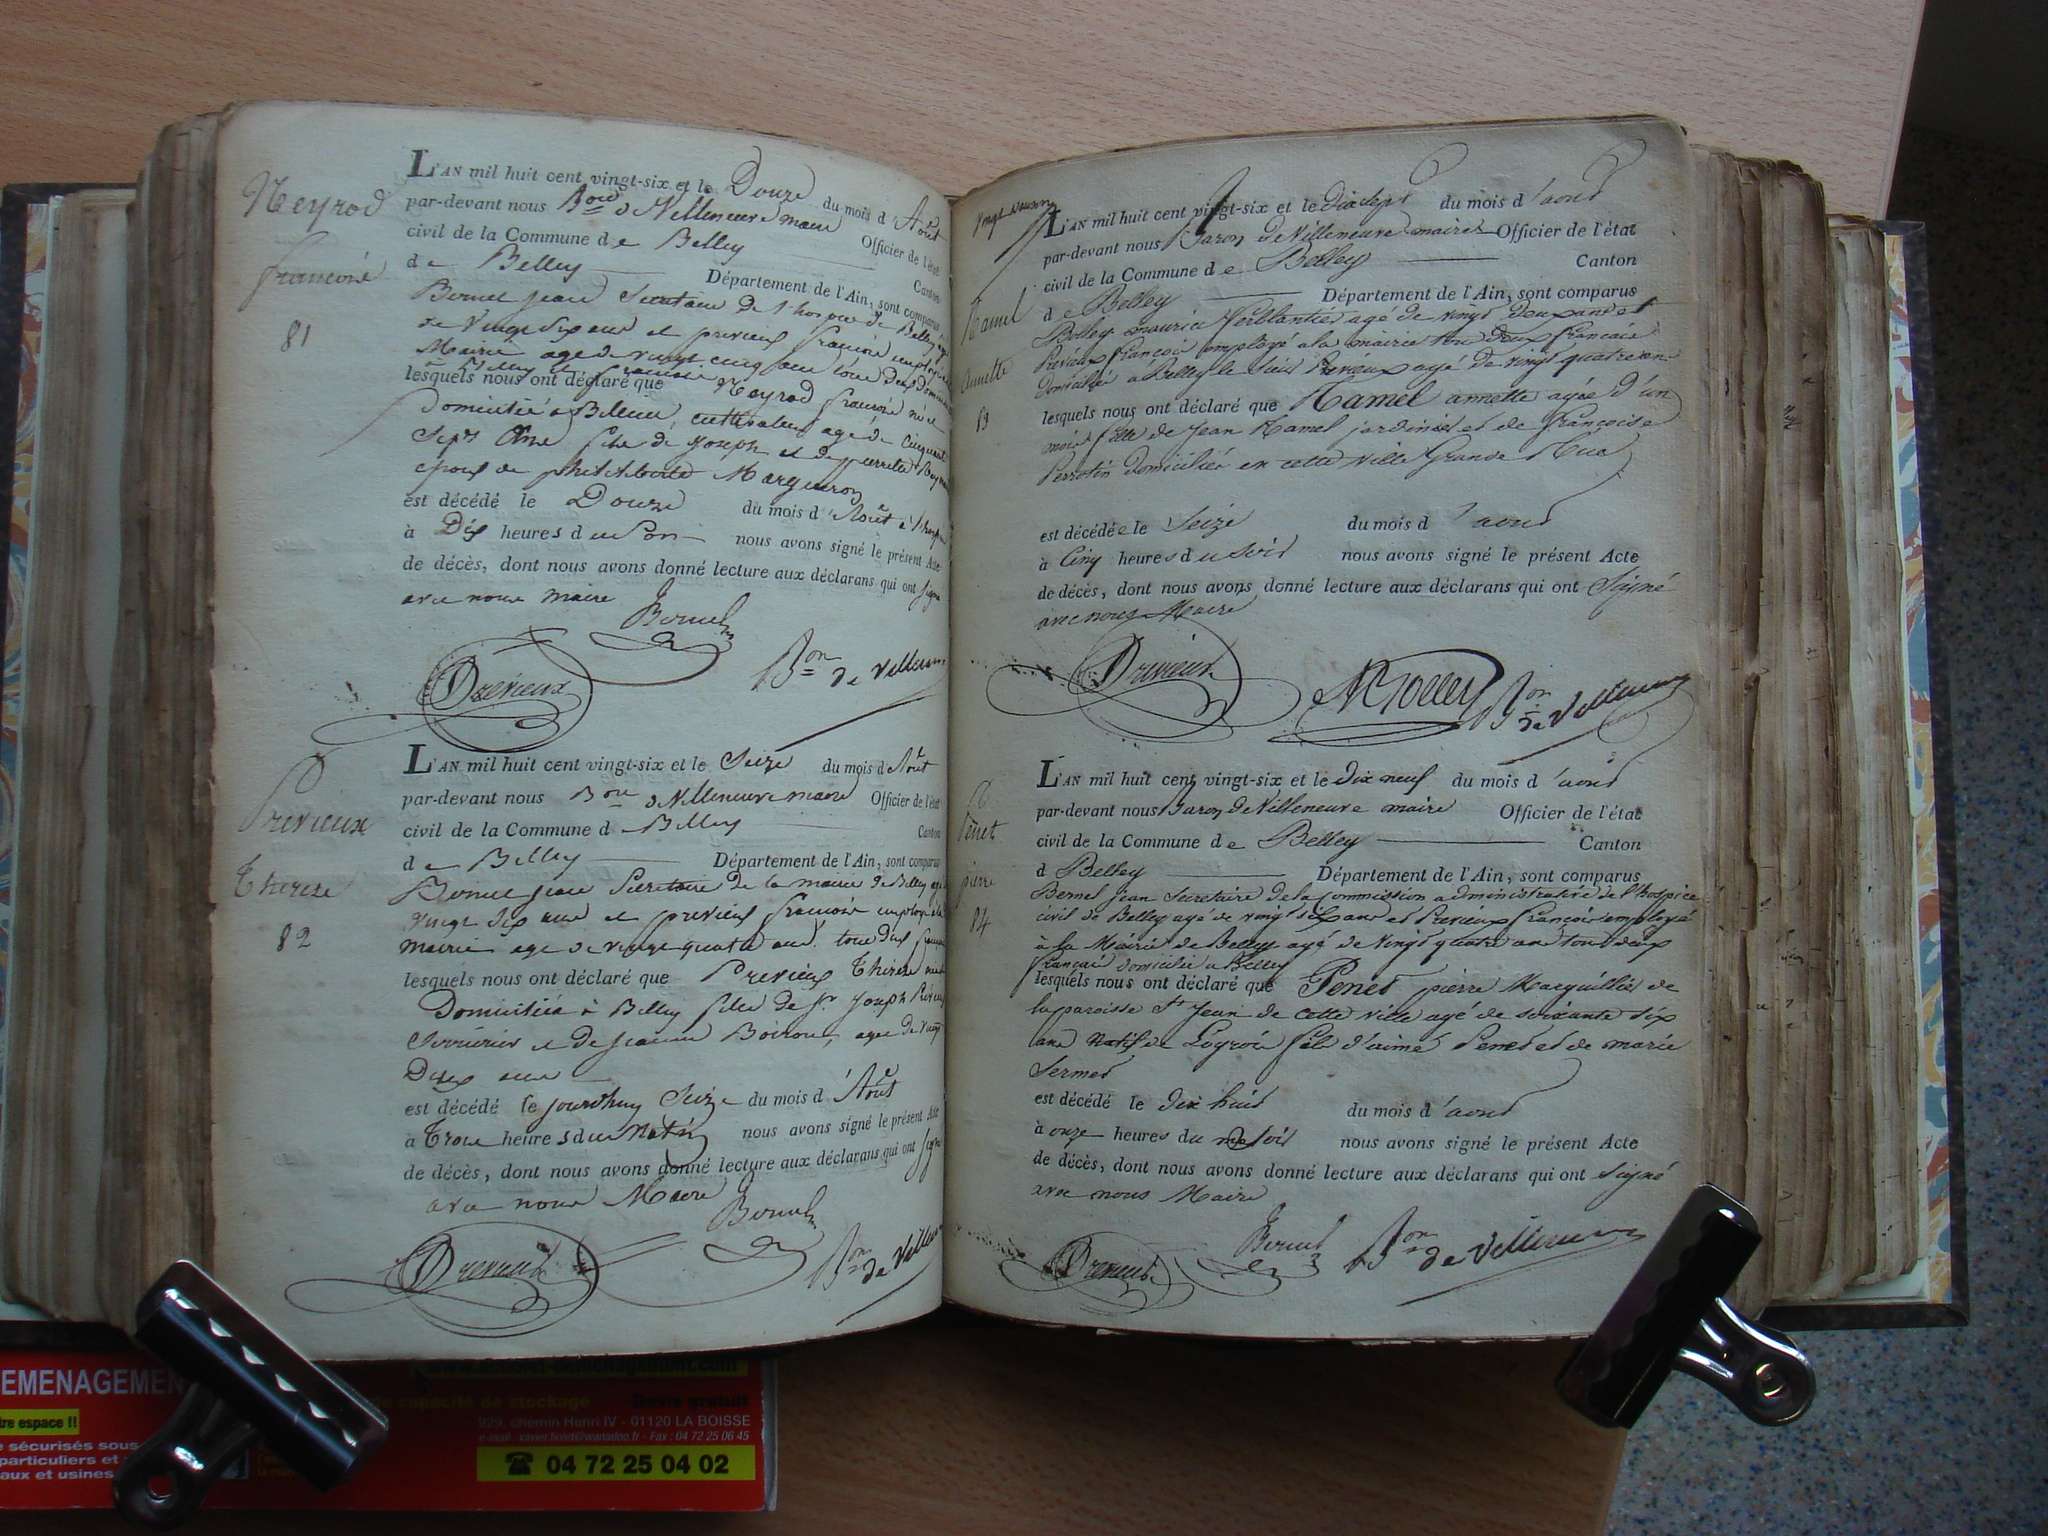 Neyrod
françois
81
L'AN mil huit cent vingt-six et le Douze du mois d'Août
par-devant nous Bon de Villeneuve maire Officier de l'état
civil de la Commune de Belley Canton
de Belley Département de l'Ain, sont comparus
Bernet jean Secretaire de l'hospice de Belley agé
de vingt Six ans et previeux françois employé
Mairie age de vingt cinq ans tous deux
lesquels nous ont déclaré que Neyrod françois né et
Domicilié a cultivateur agé de Cinquante
Sept Ans fils de joseph et de pierrette
epoux de philiberte Margueron
est décédé le Douze du mois d'Août à l'hospice
à Dix heures du Soir nous avons signé le présent Acte
de décès, dont nous avons donné lecture aux déclarans qui ont signé
avec nous maire
Bernet
Previeux
Bon de Villeneuve
Previeux
Therese
82
L'AN mil huit cent vingt-six et le Seize du mois d'Août
par-devant nous Bon de Villeneuve maire Officier de l'état
civil de la Commune de Belley Canton
de Belley Département de l'Ain, sont comparus
Bernet jean Secretaire de la mairie de Belley agé
vingt six ans et previeux françois employé à la
mairie age de vingt quatre ans tous deux français
lesquels nous ont déclaré que Previeux Therese née
Domiciliée à Belley fille de Sr joseph Previeux
Serrurier et de jeanne agee de vingt
Deux ans
est décédé le jourdhuy Seize du mois d'Août
à Trois heures du Matin nous avons signé le présent Acte
de décès, dont nous avons donné lecture aux déclarans qui ont signé
avec nous Maire
Bernet
Previeux
Bon de Villeneuve
Hamel
Annette
83
L'AN mil huit cent vingt-six et le dix sept du mois d'aout
par-devant nous Baron de Villeneuve maire Officier de l'état
civil de la Commune de Belley Canton
de Belley Département de l'Ain, sont comparus
Belley maurice ferblantier agé de vingt deux ans et
Previeux François employé a la mairie tous deux français
domiciliés à Belley le sieur Previeux agé de vingt quatre ans
lesquels nous ont déclaré que Hamel annette agée d'un
mois fille de Jean Hamel jardinier et de françoise
Perrotin domiciliés en cette ville Grande Rue
est décédée le Seize du mois d'aout
à Cinq heures du soir nous avons signé le présent Acte
de décès, dont nous avons donné lecture aux déclarans qui ont Signé
avec nous Maire
Previeux
Bon de Villeneuve
Penet
pierre
84
L'AN mil huit cent vingt-six et le dix neuf du mois d'aout
par-devant nous Baron de Villeneuve maire Officier de l'état
civil de la Commune de Belley Canton
d Belley Département de l'Ain, sont comparus
Bernet jean Secretaire de la Commission administrative de l'hospice
civil de Belley agé de vingt six ans et Previeux françois employé
à la Mairie de Belley agé de vingt quatre ans tous deux
français domiciliés a Belley
lesquels nous ont déclaré que Penet pierre Marguillier de
la paroisse St Jean de cette ville agé de soixante six
ans natif de fils d'aimé Penet et de marie
Sermet
est décédé le dix huit du mois d'aout
à onze heures du soir nous avons signé le présent Acte
de décès, dont nous avons donné lecture aux déclarans qui ont signé
avec nous Maire
Previeux
Bernet
Bon de Villeneuve
EMENAGEMEN
tre espace !!
sécurisés sous
particuliers et
aux et usines
capacité de stockage Devis gratuit
929, chemin Henri IV - 01120 LA BOISSE
Fax : 04 72 25 06 45
☎ 04 72 25 04 02